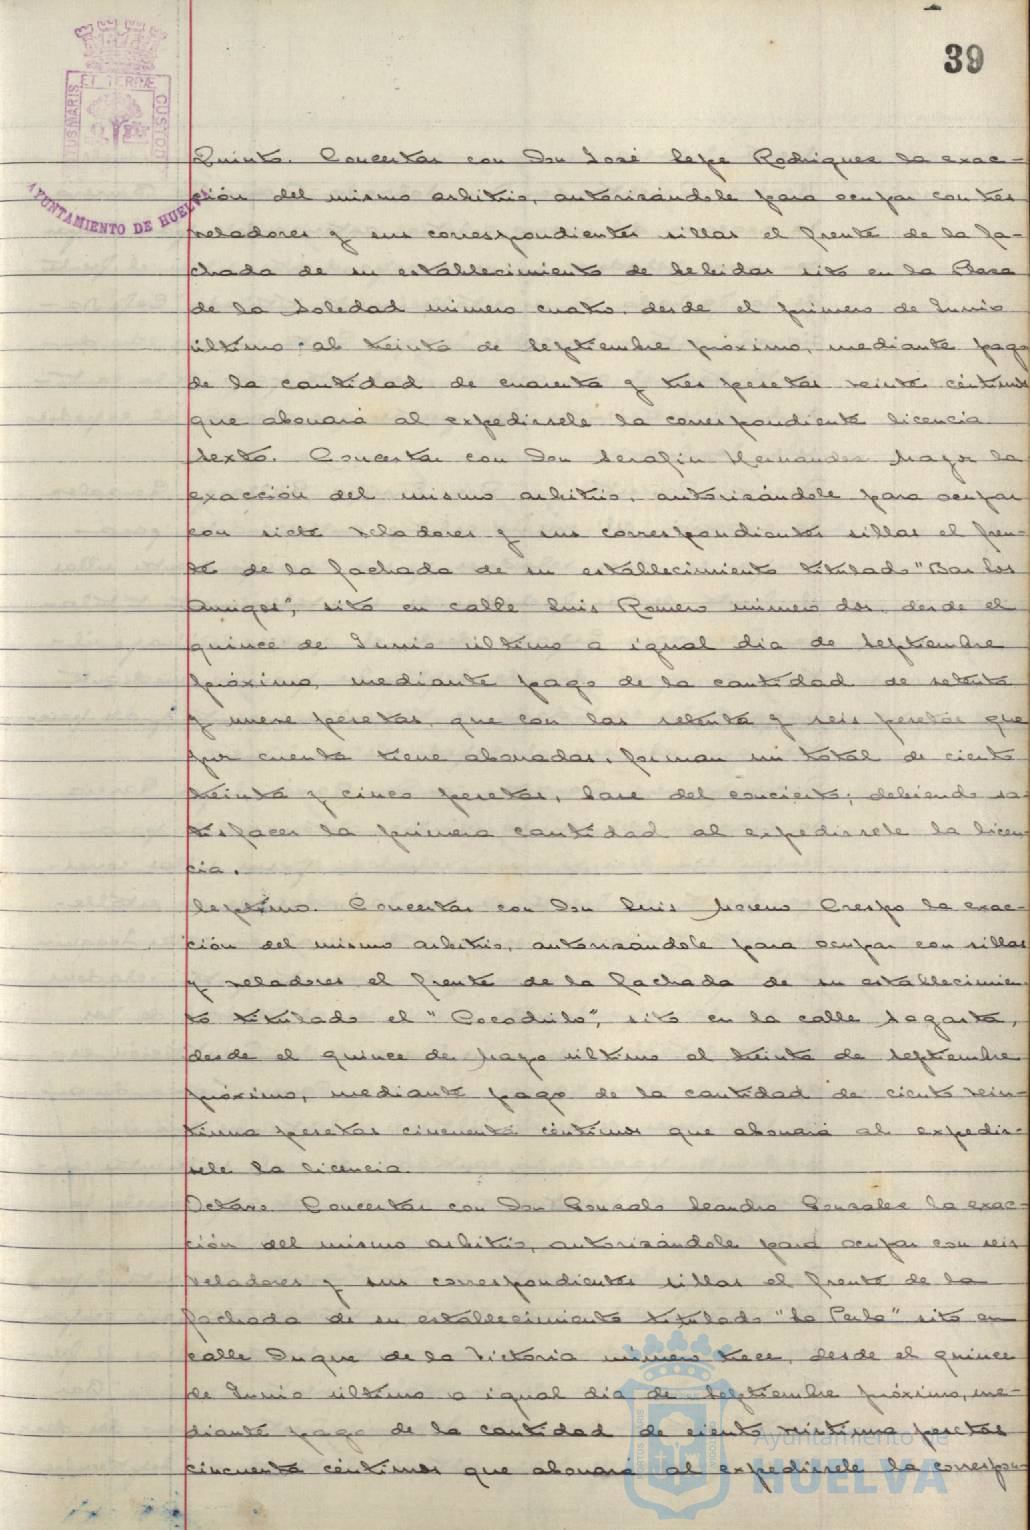 39
ET TERRÆ
TUS MARIS
CUSTOD
AYUNTAMIENTO DE HUELVA
Quinto. Concertar con Don José Pepe Rodriguez la exac-
ción del mismo arbitrio, autorizándole para ocupar con tres
veladores y sus correspondientes sillas el frente de la fa-
chada de su establecimiento de bebidas sito en la Plaza
de la Soledad número cuatro, desde el primero de Junio
último al treinta de Septiembre próximo, mediante pago
de la cantidad de cuarenta y tres pesetas veinte céntimos
que abonará al expedirsele la correspondiente licencia
Sexto. Concertar con Don Serafin Hernandez Mayor la
exacción del mismo arbitrio, autorizándole para ocupar
con siete veladores y sus correspondientes sillas el fren-
te de la fachada de su establecimiento titulado "Bar los
Amigos", sito en calle Luis Romero número dos, desde el
quince de Junio último a igual dia de Septiembre
próximo, mediante pago de la cantidad de setenta
y nueve pesetas, que con las setenta y seis pesetas que
por cuenta tiene abonadas, forman un total de ciento
treinta y cinco pesetas, base del concierto; debiendo sa-
tisfacer la primera cantidad al expedirsele la licen-
cia.
Septimo. Concertar con Don Luis Moreno Crespo la exac-
ción del mismo arbitrio, autorizándole para ocupar con sillas
y veladores el frente de la fachada de su establecimien-
to titulado el "Cocodrilo", sito en la calle Sagasta,
desde el quince de Mayo último al treinta de Septiembre
próximo, mediante pago de la cantidad de ciento vein-
tiuna pesetas cincuenta céntimos que abonará al expedir-
sele la licencia.
Octavo. Concertar con Don Gonzalo Leandro Gonzalez la exac-
ción del mismo arbitrio, autorizándole para ocupar con seis
veladores y sus correspondientes sillas el frente de la
fachada de su establecimiento titulado "La Perla" sito en
calle Duque de la Victoria número trece, desde el quince
de Junio último a igual dia de Septiembre próximo, me-
diante pago de la cantidad de ciento veintiuna pesetas
cincuenta céntimos que abonará al expedirsele la correspon-
Ayuntamiento de
HUELVA